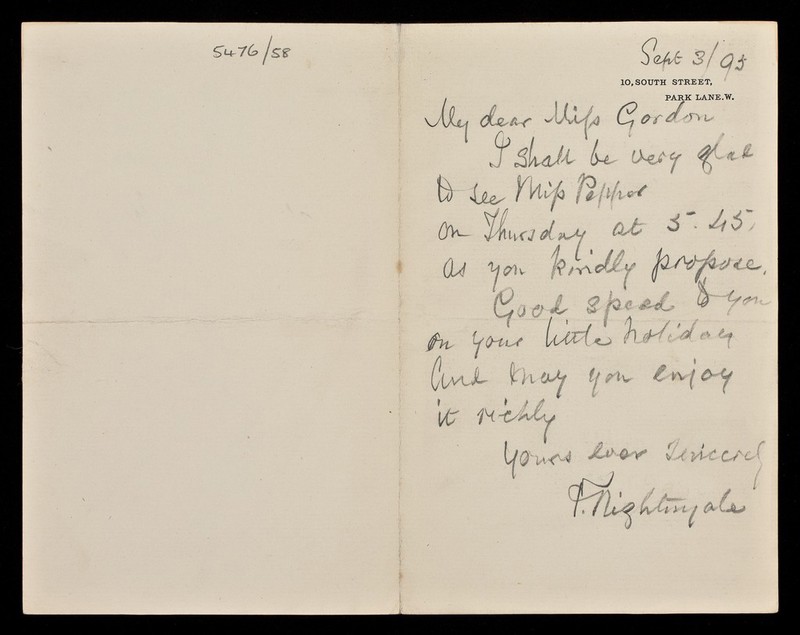 5476/58
Sept 3/95
10, SOUTH STREET,
PARK LANE. W.
My dear Miss Gordon
I shall be very glad
to see Miss Pepper
on Thursday at 5.45,
as you kindly propose.
Good speed to you
on your little holiday
And may you enjoy
it richly
yours ever sincerely
F. Nightingale